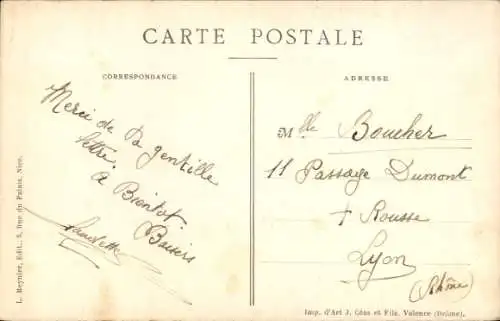 CARTE POSTALE
CORRESPONDANCE
Merci de ta gentille
lettre.
à Bientôt.
Baisers
ADRESSE
Mlle Boucher
11 Passage Dumont
+ Rousse
Lyon
(Rhône)
L. Reynier, Edit., 5, Rue du Palais, Nice.
Imp. d'Art J. Céas et Fils, Valence (Drôme).